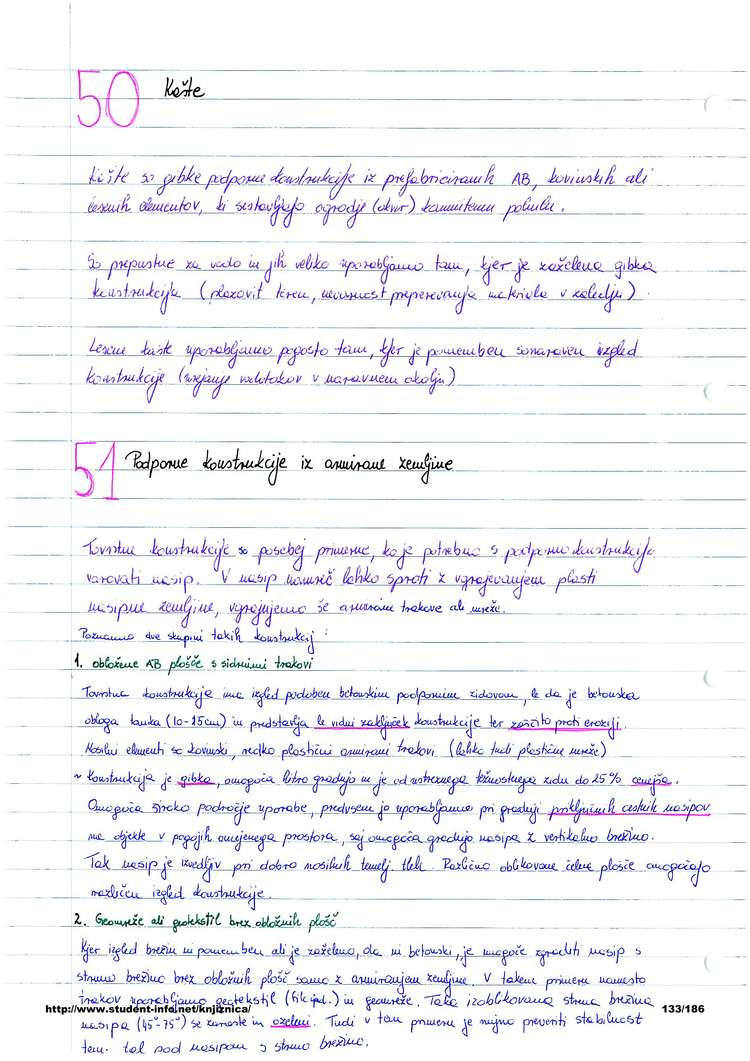 50 Kašte
Kašte so gibke podporne konstrukcije iz prefabriciranih AB, kovinskih ali
lesenih elementov, ki sestavljajo ogrodje (okvir) kamnitemu polnilu.
So prepustne za vodo in jih veliko uporabljamo tam, kjer je zaželena gibka
konstrukcija (plazovit teren, nevarnost preperevanja materiala v zaledju)
Lesene kašte uporabljamo pogosto tam, kjer je pomemben sonaraven izgled
konstrukcije (urejanje vodotokov v naravnem okolju)
51 Podporne konstrukcije iz armirane zemljine
Tovrstne konstrukcije so posebej primerne, ko je potrebno s podporno konstrukcijo
varovati nasip. V nasip namreč lahko sproti z vgrajevanjem plasti
nasipne zemljine, vgrajujemo še armirane trakove ali mreže.
Poznamo dve skupini takih konstrukcij:
1. obložene AB plošče s sidrnimi trakovi
Tovrstna konstrukcija ima izgled podoben betonskim podpornim zidovom, le da je betonska
obloga tanka (10-25cm) in predstavlja le vidni zaključek konstrukcije ter zaščito proti eroziji.
Nosilni elementi so kovinski, redko plastični armirani trakovi (lahko tudi plastične mreže)
~ Konstrukcija je gibka, omogoča hitro gradnjo in je od ustreznega težnostnega zidu do 25% cenejša.
Omogoča široko področje uporabe, predvsem jo uporabljamo pri gradnji priključnih cestnih nasipov
na objekte v pogojih omejenega prostora, saj omogoča gradnjo nasipa z vertikalno brežino.
Tak nasip je izvedljiv pri dobro nosilnih temelj. tleh. Različno oblikovane čelne plošče omogočajo
različen izgled konstrukcije.
2. Geomreže ali geotekstil brez obložnih plošč
Kjer izgled brežin ni pomemben ali je zaželeno, da ni betonski, je mogoče zgraditi nasip s
strmo brežino brez obložnih plošč samo z armiranjem zemljine. V takem primeru namesto
trakov uporabljamo geotekstil (filc) in geomreže. Tako izoblikovana strma brežina
http://www.student-info.net/knjiznica/ 133/186
nasipa (45°-75°) se zaraste in ozeleni. Tudi v tem primeru je nujno preveriti stabilnost
tem. tal pod nasipom s strmo brežino.